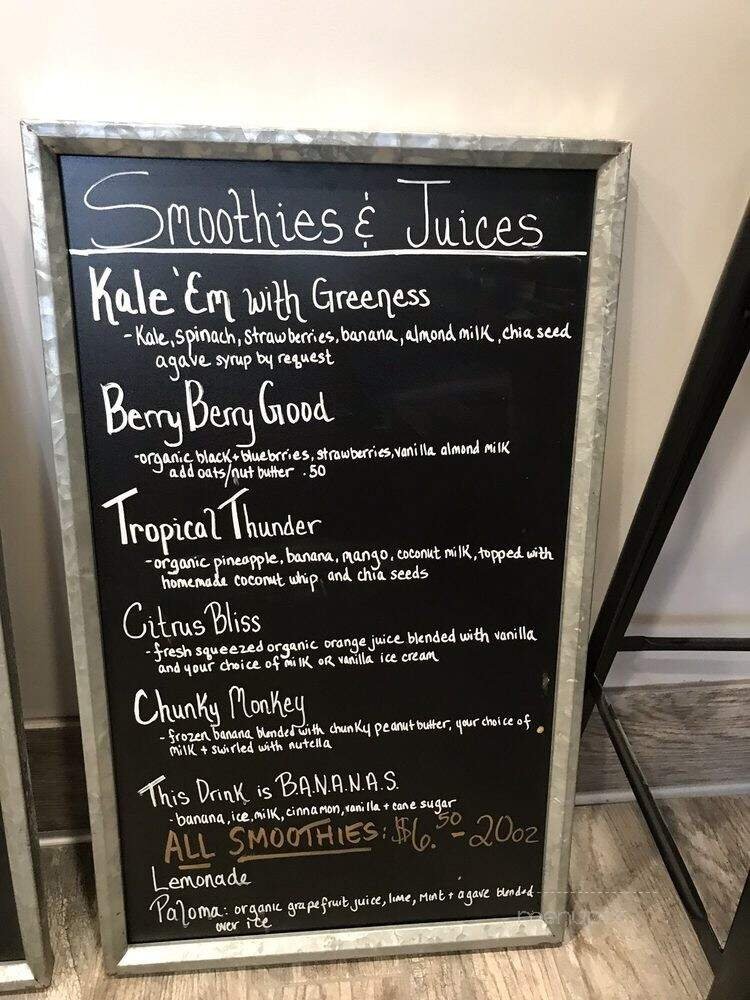 Smoothies & Juices
Kale 'Em with Greeness
- Kale, spinach, strawberries, banana, almond milk, chia seed
agave syrup by request
Berry Berry Good
-organic black+bluebrries, strawberries, vanilla almond milk
add oats/nut butter .50
Tropical Thunder
-organic pineapple, banana, mango, coconut milk, topped with
homemade coconut whip and chia seeds
Citrus Bliss
- fresh squeezed organic orange juice blended with vanilla
and your choice of milk OR vanilla ice cream
Chunky Monkey
- frozen banana blended with chunky peanut butter, your choice of
milk + swirled with nutella
This Drink is B.A.N.A.N.A.S.
- banana, ice, milk, cinnamon, vanilla + cane sugar
ALL SMOOTHIES: $6.50 - 20oz
Lemonade
Paloma: organic grapefruit juice, lime, mint + agave blended
over ice